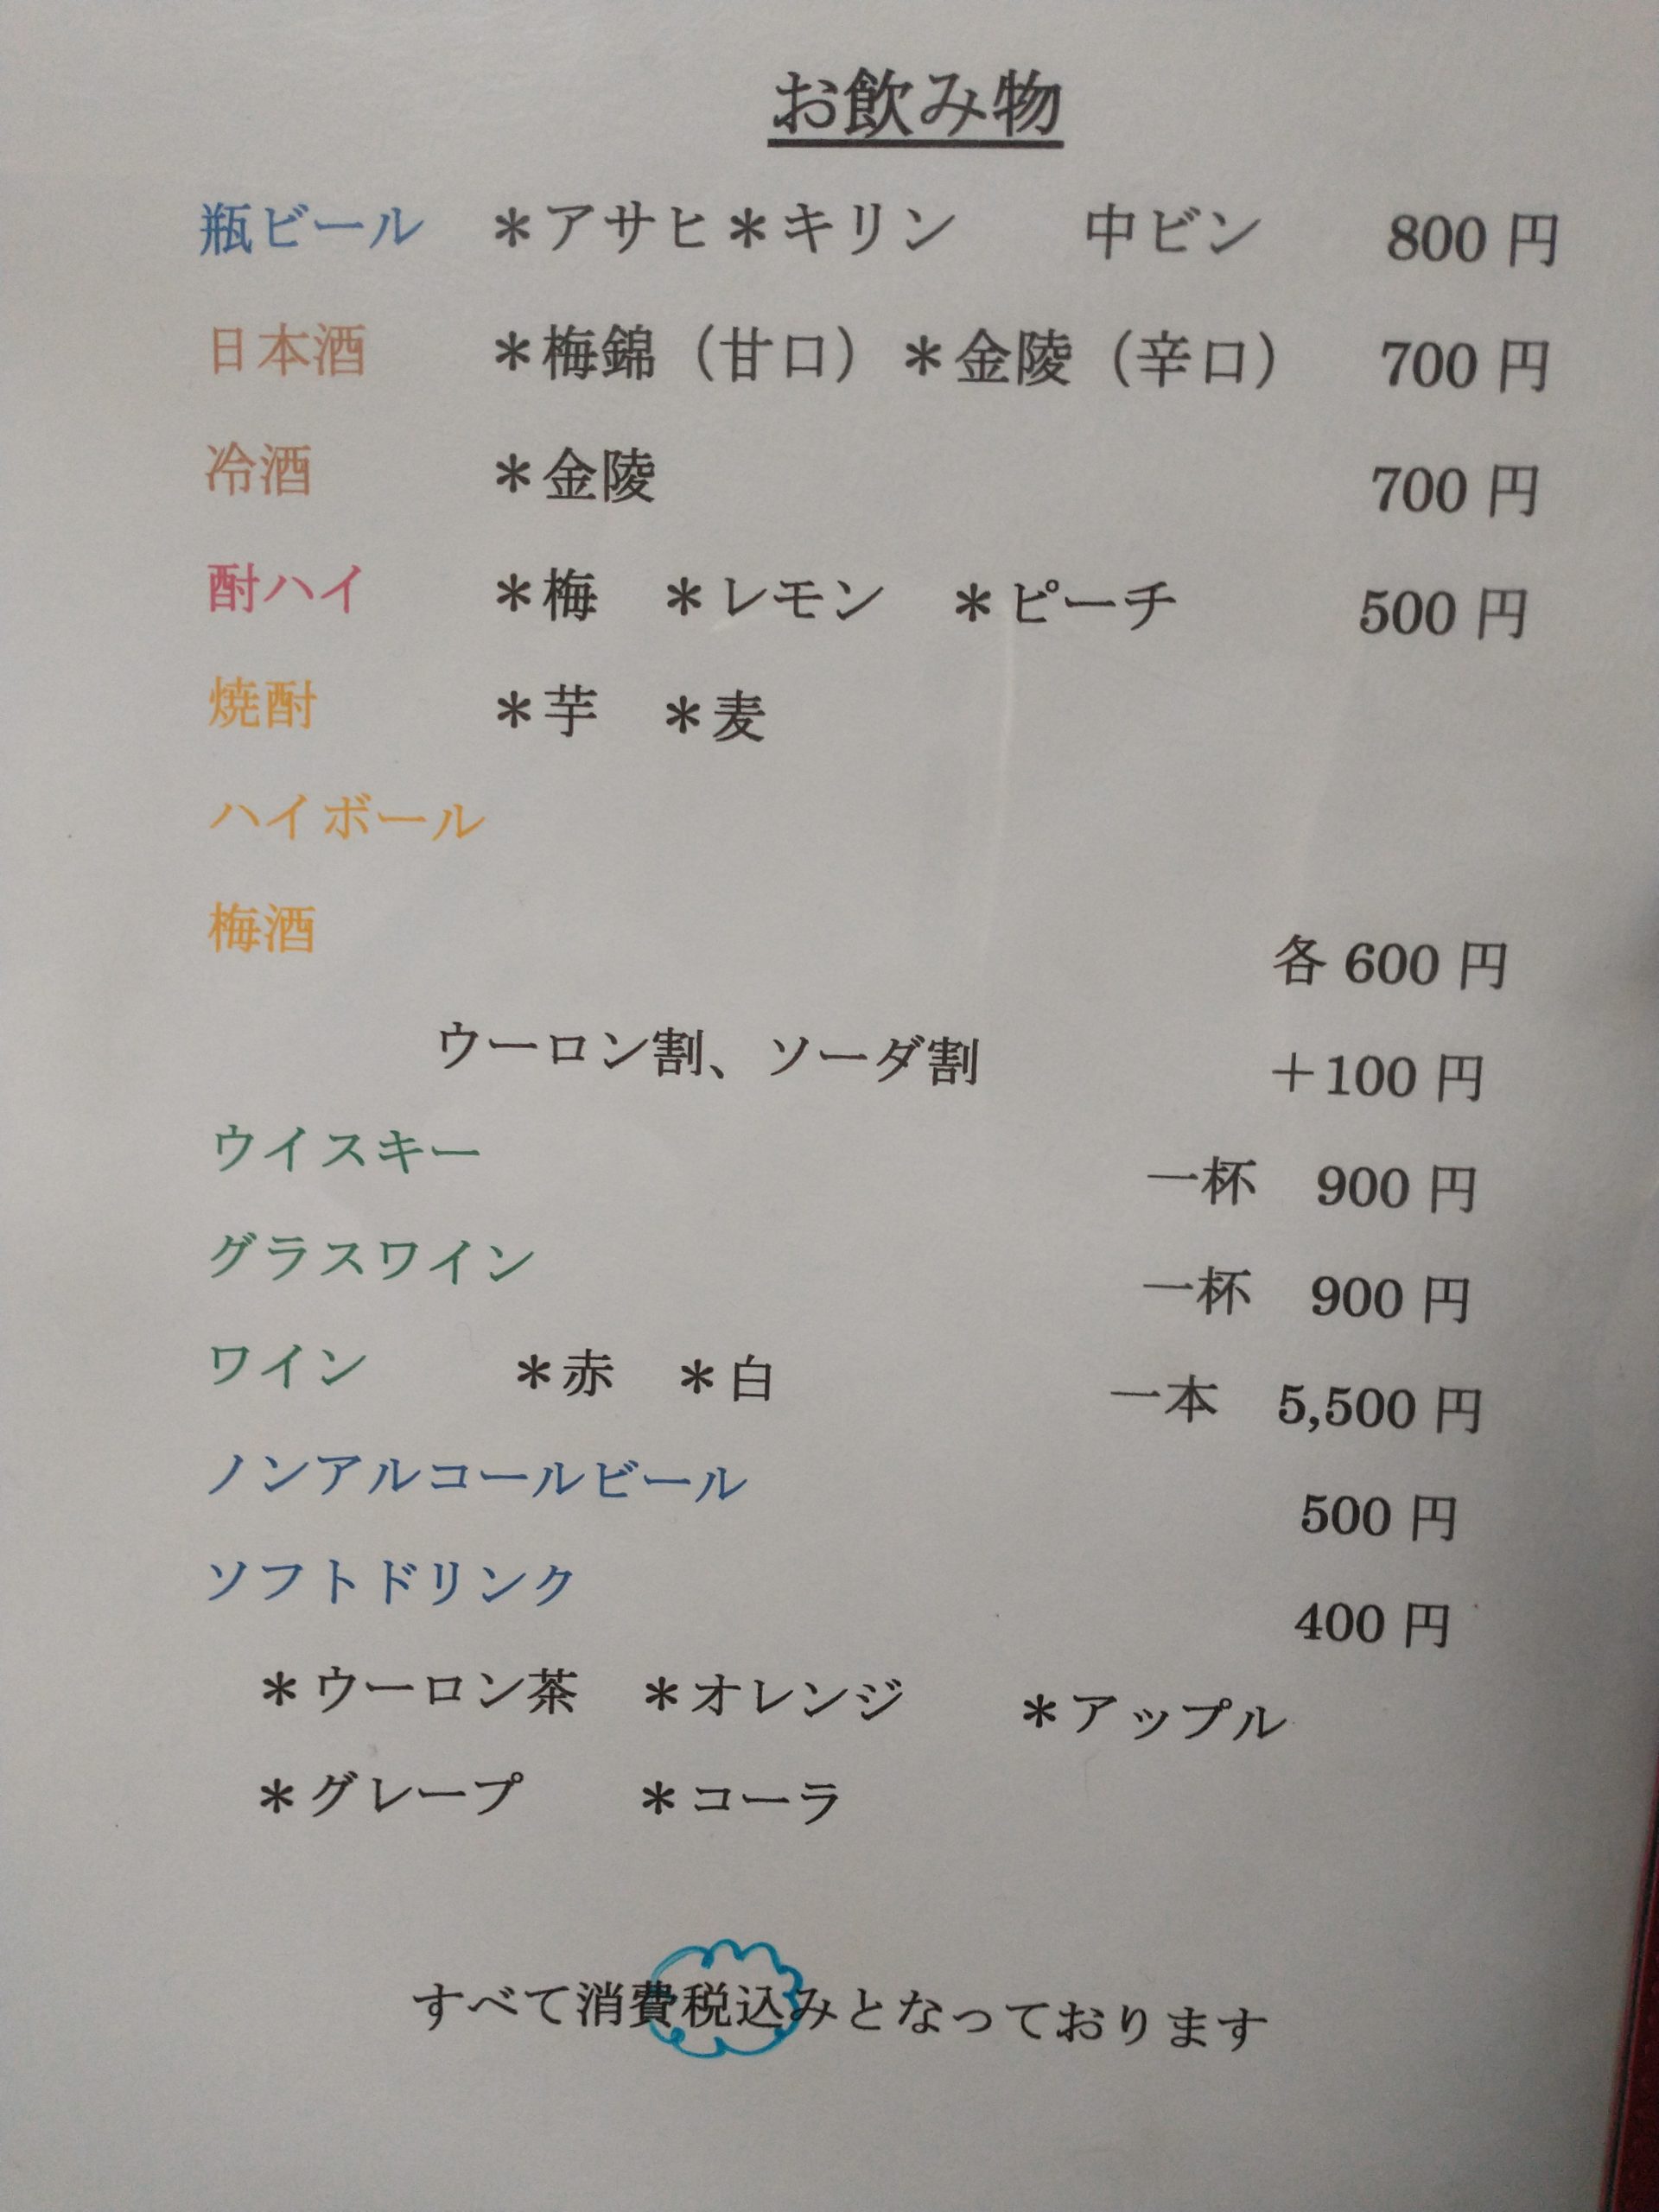 お飲み物
瓶ビール ＊アサヒ＊キリン 中ビン 800 円
日本酒 ＊梅錦（甘口）＊金陵（辛口） 700 円
冷酒 ＊金陵 700 円
酎ハイ ＊梅 ＊レモン ＊ピーチ 500 円
焼酎 ＊芋 ＊麦
ハイボール
梅酒 各 600 円
ウーロン割、ソーダ割 ＋100 円
ウイスキー 一杯 900 円
グラスワイン 一杯 900 円
ワイン ＊赤 ＊白 一本 5,500 円
ノンアルコールビール 500 円
ソフトドリンク 400 円
＊ウーロン茶 ＊オレンジ ＊アップル
＊グレープ ＊コーラ
すべて消費税込みとなっております